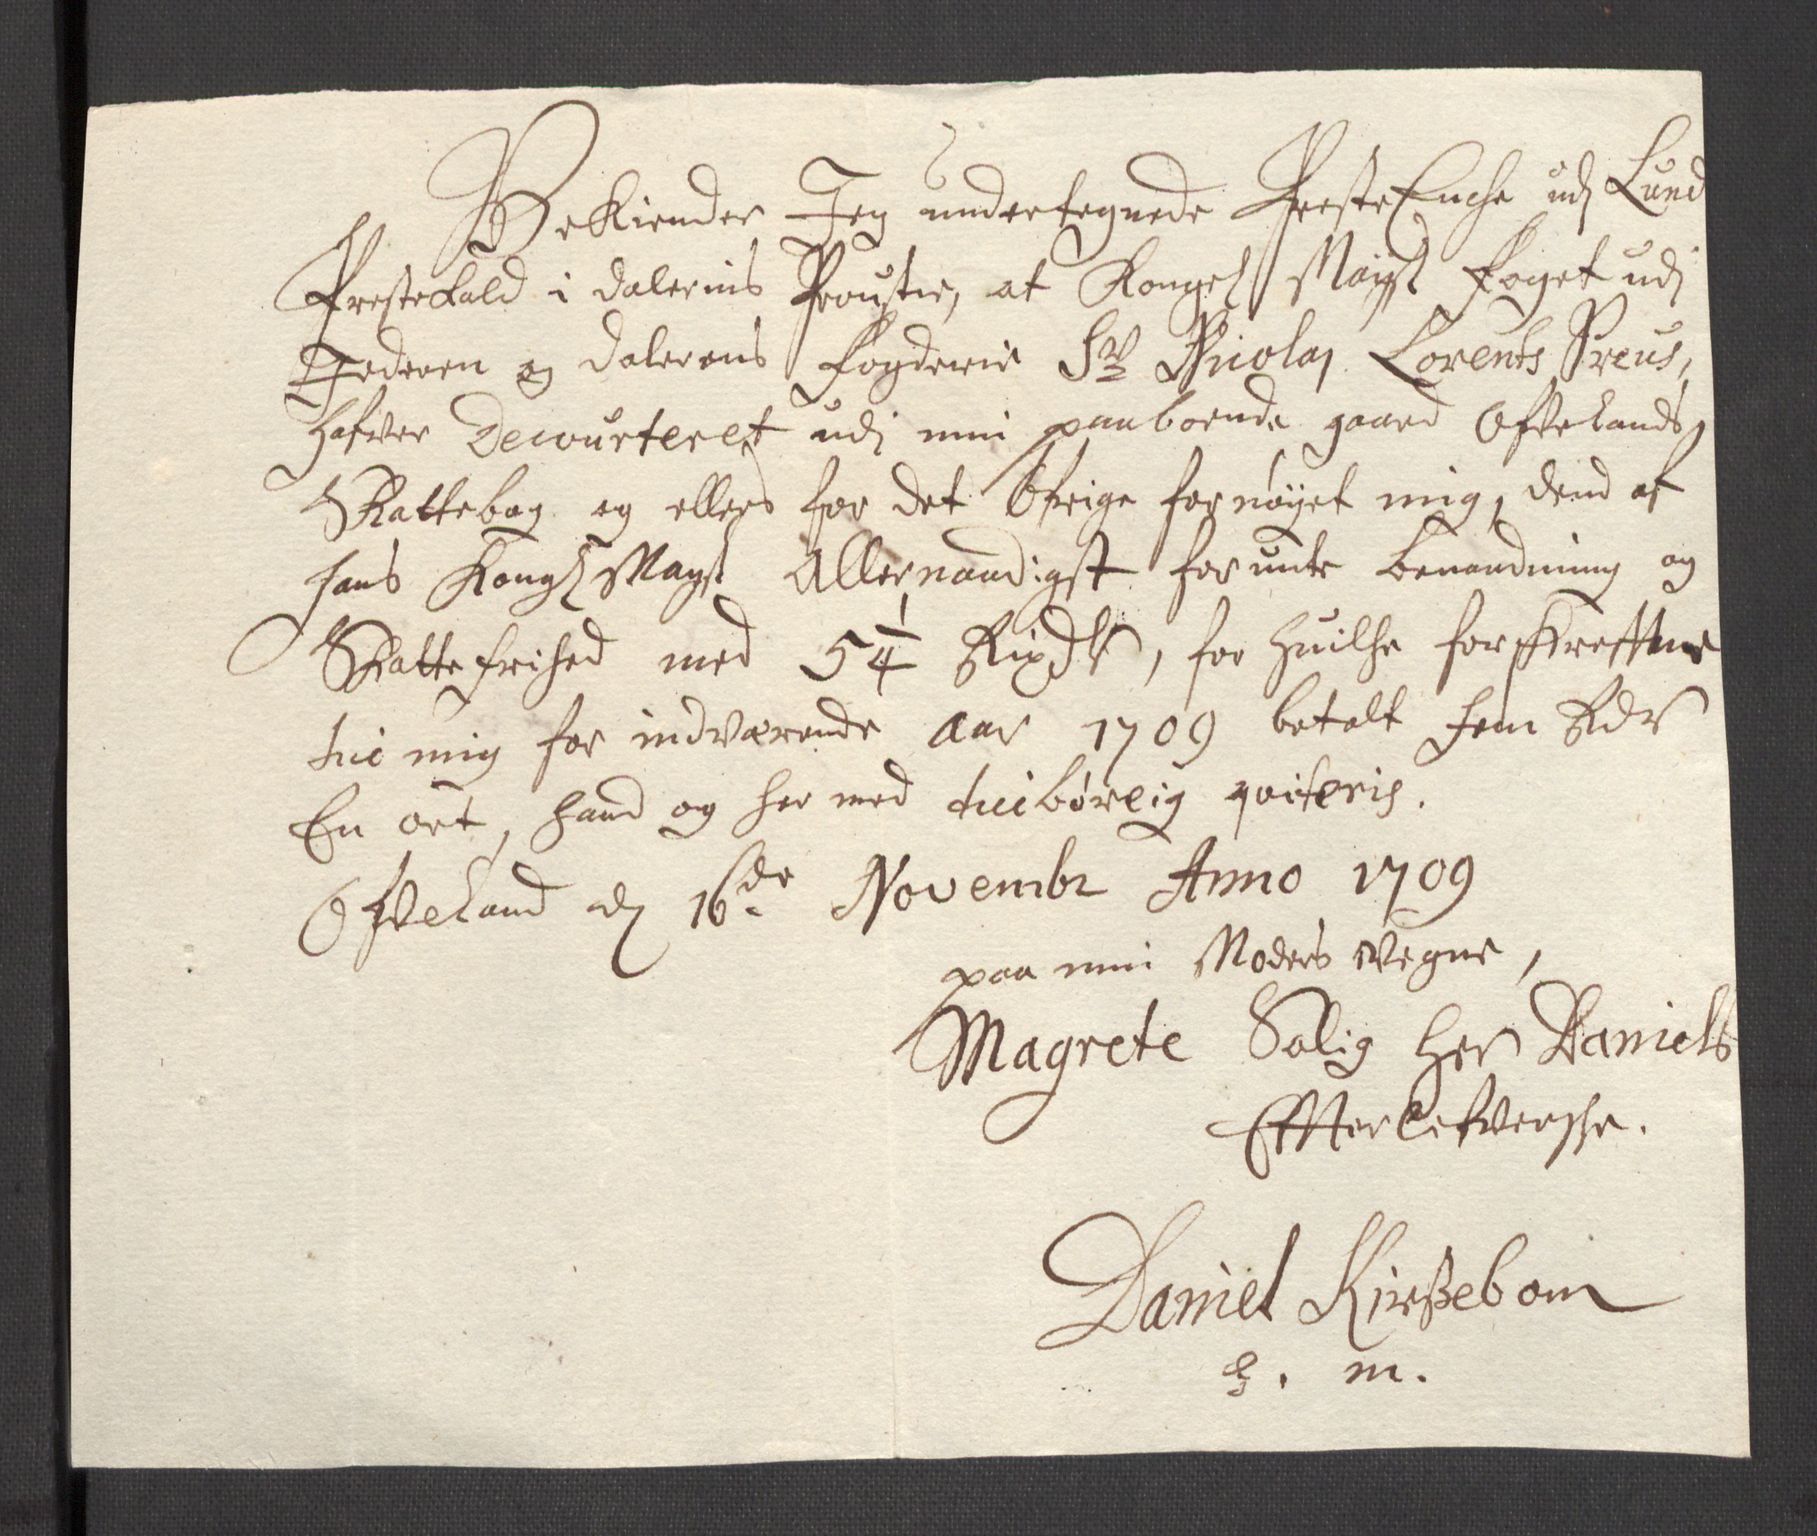 Bekiender Jeg undertegnede PresteEncke udj Lund
Prestekald i Dalernis Proustie, at Kongel Mayst foget udj
Jederen og Dalerens fogderie Sr Nicolaj Lorents Preus,
hafver Decourteret udj min paaboende gaard Ofvelands
Skattebog og ellers for det Øfrige fornøyet mig, dend af
hans Kongl Mayst Allernaadigst forunte benaadning og
Skatte frihed med 5 1/4 Rixdr, for huilke forskrefttne
hie mig for indværende Aar 1709 betalt fem Rdr
En ort, hand og her med tilbørlig qviteris.
Ofveland dj 16de Novembr Anno 1709
paa min Moders Vegne,
Magrete Salig Her Daniels
Effterlefverske.
Daniel Kirßebom
E. m.